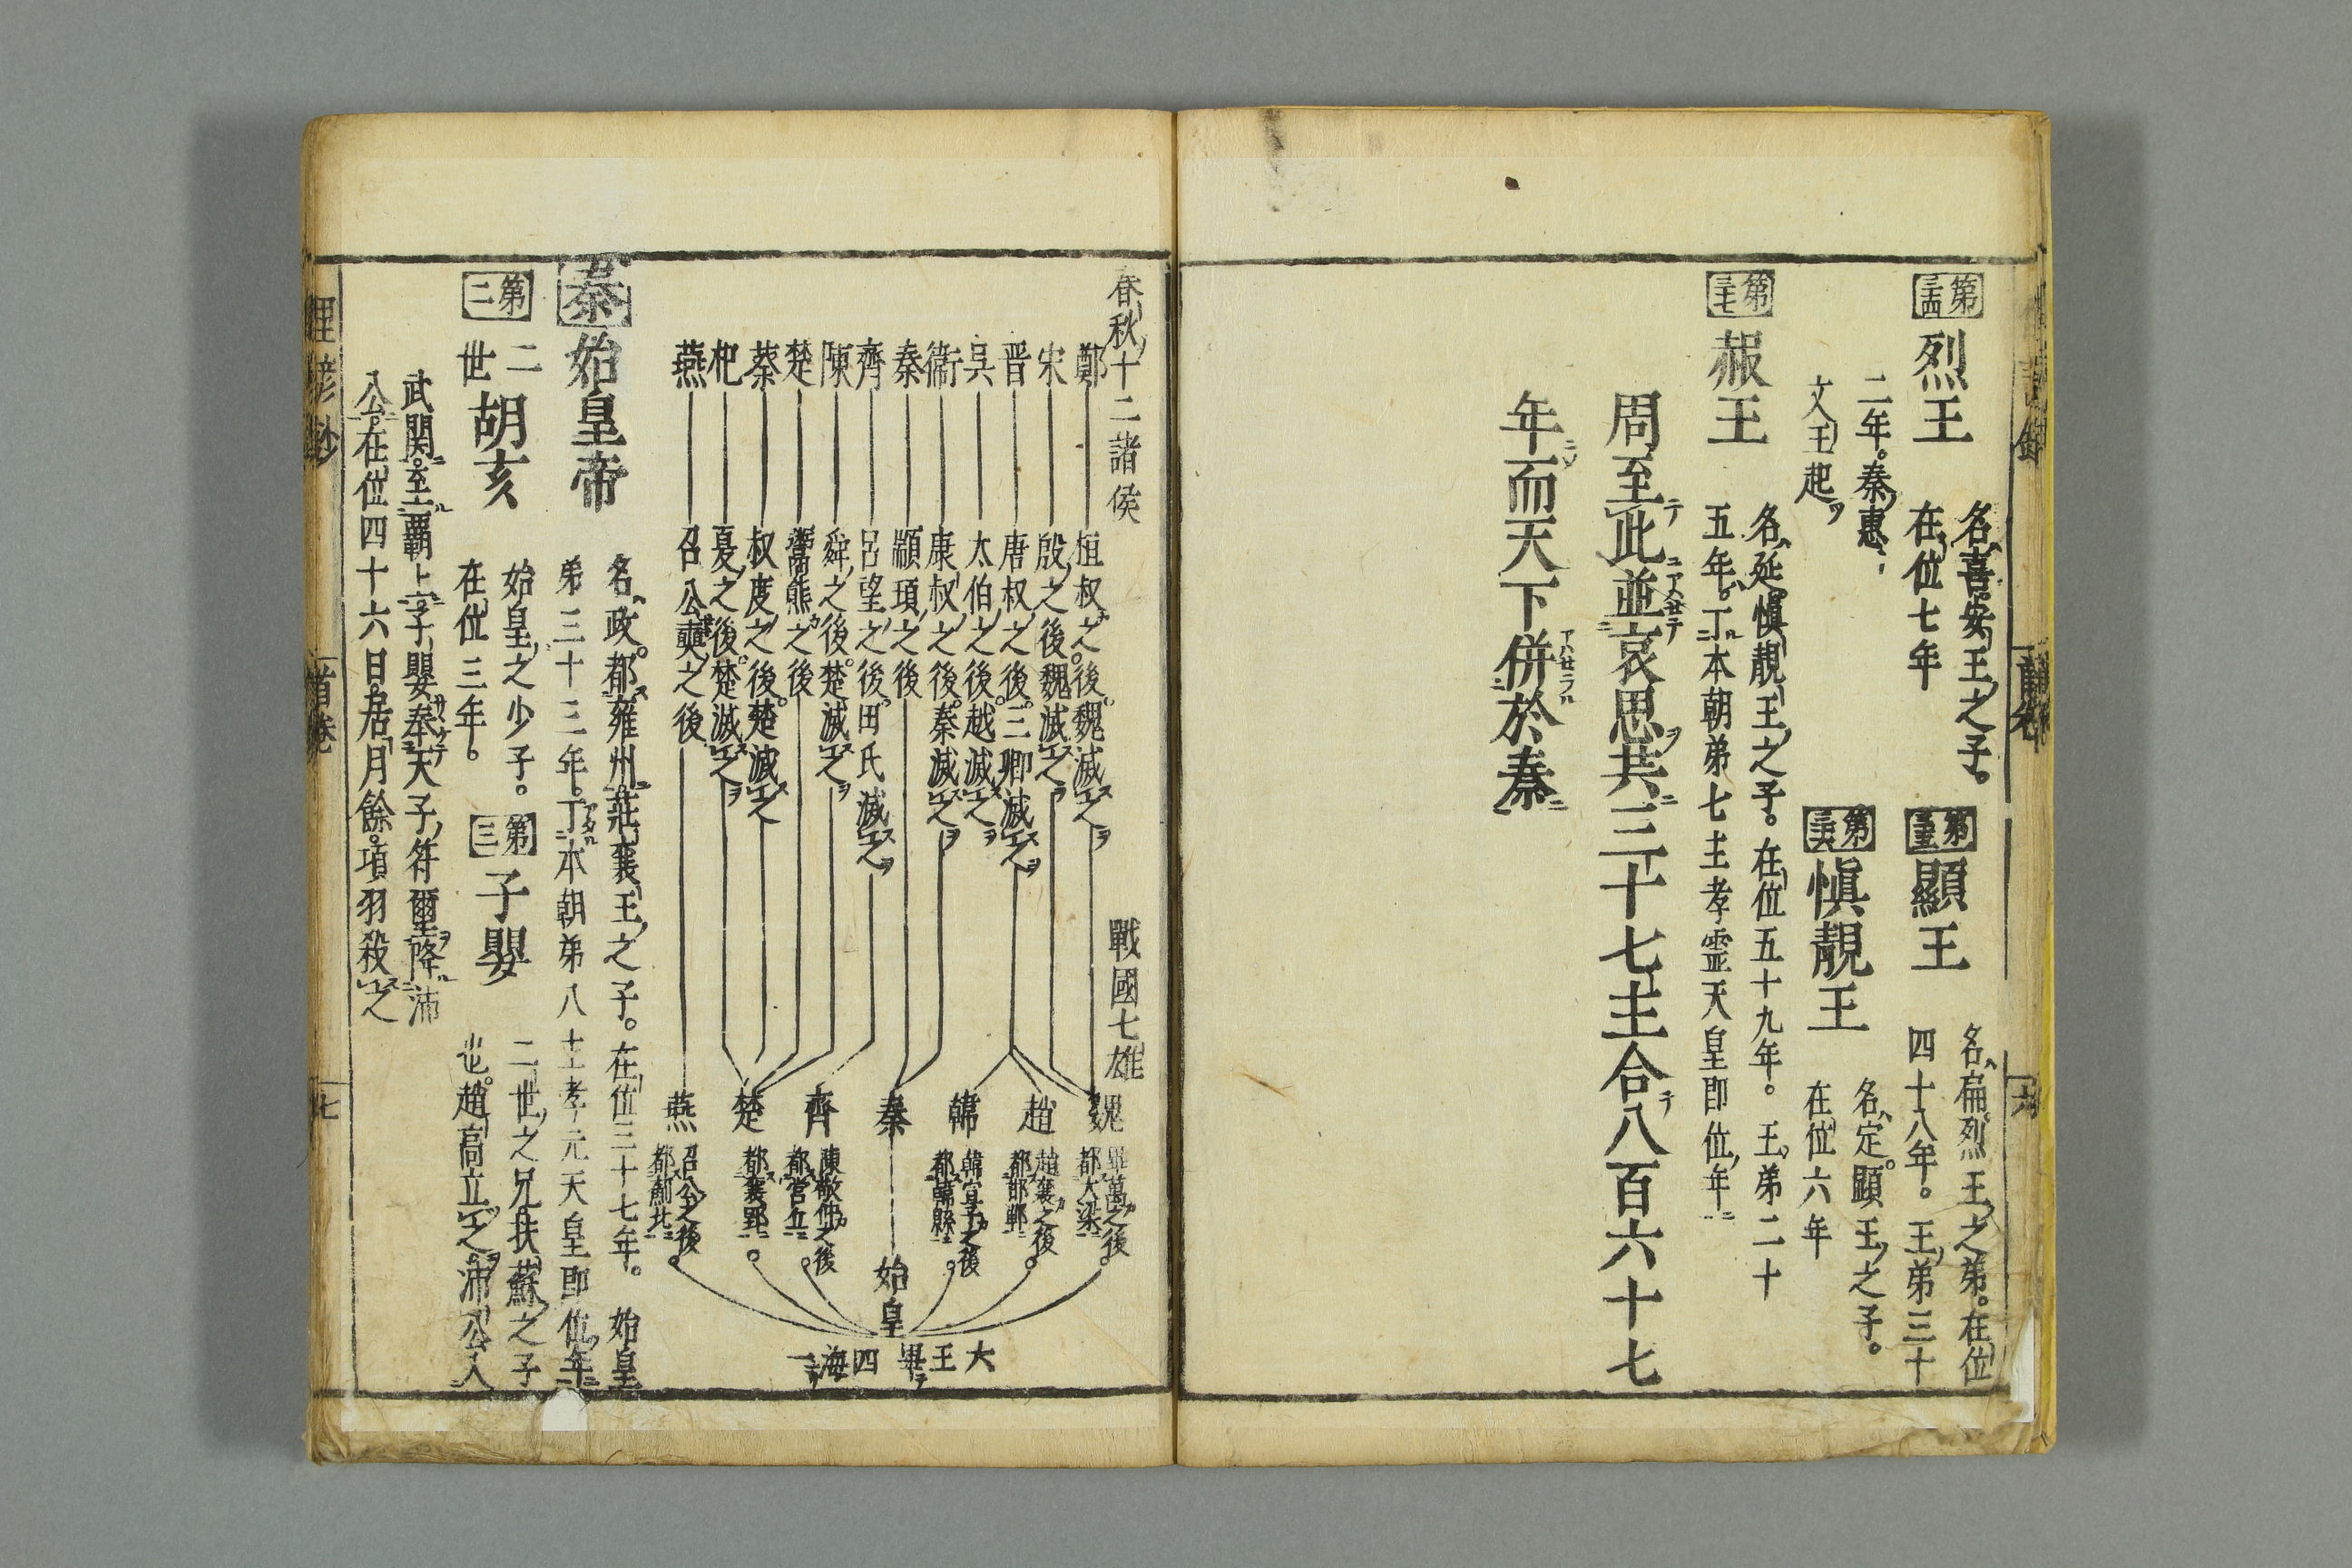 第三十四 烈王
名喜。安王之子。
在位七年
第三十五 顯王
名扁。烈王之弟。在位
四十八年。王弟三十
二年。秦惠
文王起
第三十六 愼靚王
名定。顯王之子。
在位六年
第三十七 赧王
名延。愼靚王之子。在位五十九年。王弟二十
五年。丁本朝弟七主孝霊天皇即位年
周至此並哀思共三十七主合八百六十七
年而天下併於秦
春秋十二諸侯
戰國七雄
鄭 桓叔之後。魏滅之
宋 殷之後。魏滅之
晋 唐叔之後。三卿滅之
吳 太伯之後。越滅之
衞 康叔之後。秦滅之
秦 顓頊之後
齊 呂望之後。田氏滅之
陳 舜之後。楚滅之
楚 鬻熊之後
蔡 叔度之後。楚滅之
杞 夏之後。楚滅之
燕 召公奭之後
魏 畢萬之後 都大梁
趙 趙襄之後 都邯鄲
韓 韓宣子之後 都韓縣
秦 始皇
齊 陳敬仲之後 都營丘
楚 都襄野
燕 召公之後 都薊北
大王畢四海一
秦 始皇帝
名政。都雍州。莊襄王之子。在位三十七年。始皇
弟三十三年。丁本朝弟八主孝元天皇即位年
第二 二世胡亥
始皇之少子。
在位三年。
第三 子嬰
二世之兄扶蘇之子
也。趙高立之。沛公入
武関。至覇上。子嬰奉天子符璽降沛
公。在位四十六日。居月餘。項羽殺之
俚諺鈔 首巻 七
首巻 六